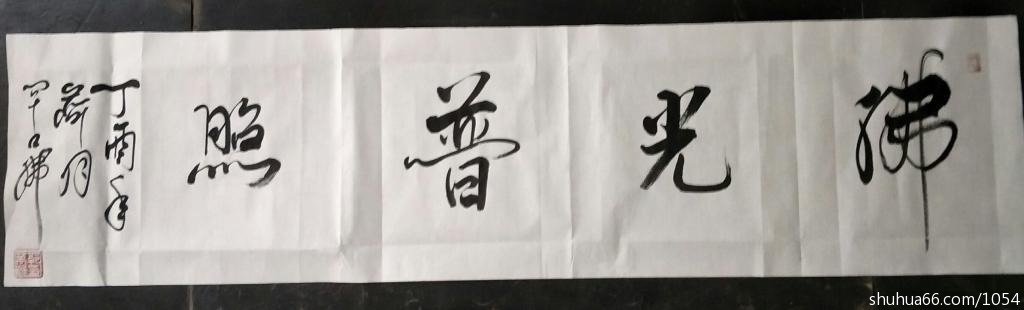 佛光普照
丁酉年
荷月
shuhua66.com/1054